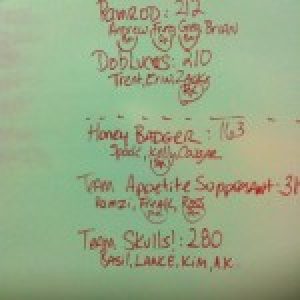 RAMROD: 212
Andrew, Greg, Brian
DOBLUNES: 210
Trent, Erin, Zack
HONEY BADGER: 163
Spade, Kelly, Cougar
TEAM Appetite Suppressant: 31
RAMZI, FREAK, ROSS
Team Skulls!: 280
BASIL, LANCE, KIM, A.K.